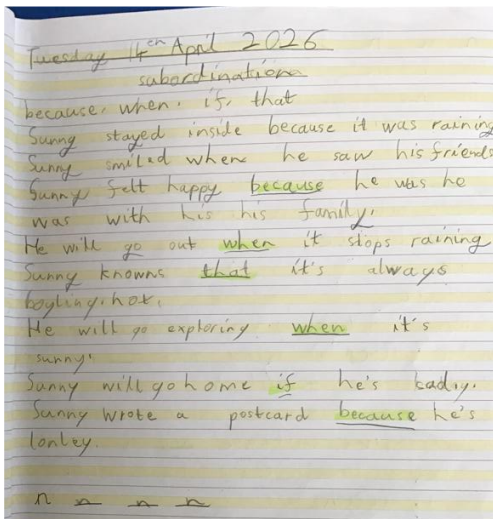 Tuesday 14th April 2026
subordination
because, when, if, that
Sunny stayed inside because it was raining
Sunny smiled when he saw his friends
Sunny felt happy because he was he
was with his his family.
He will go out when it stops raining
Sunny knowns that it's always
boyling hot.
He will go exploring when it's
sunny.
Sunny will go home if he's
Sunny wrote a postcard because he's
lonley.
n n n n